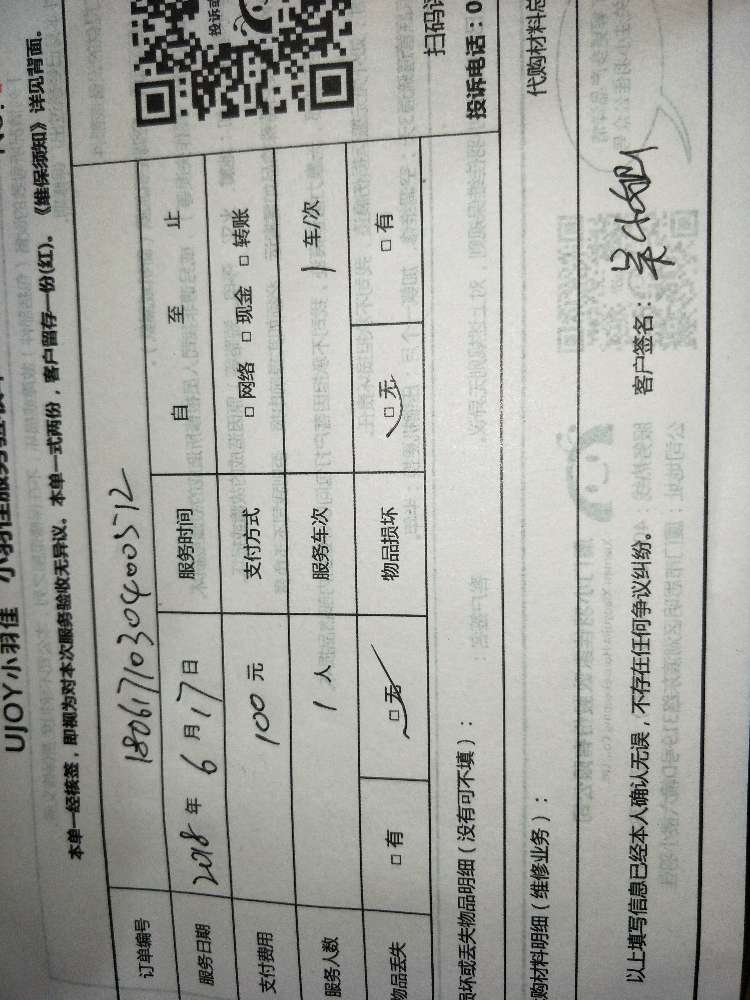 UJOY小羽佳 小羽佳服务验收单
本单一经核签，即视为对本次服务验收无异议。本单一式两份，客户留存一份(红)。《维保须知》详见背面。
订单编号 180617103040051２
服务日期 2018 年 6 月 17 日 服务时间 自 至 止
支付费用 100 元 支付方式 □ 网络 □ 现金 □ 转账
服务人数 1 人 服务车次 1 车/次
物品丢失 □ 有 □ 无 物品损坏 □ 无 □ 有
损坏或丢失物品明细（没有可不填）：
代购材料明细（维修业务）： 代购材料总
以上填写信息已经本人确认无误，不存在任何争议纠纷。 客户签名：
投诉或
扫码
投诉电话：0